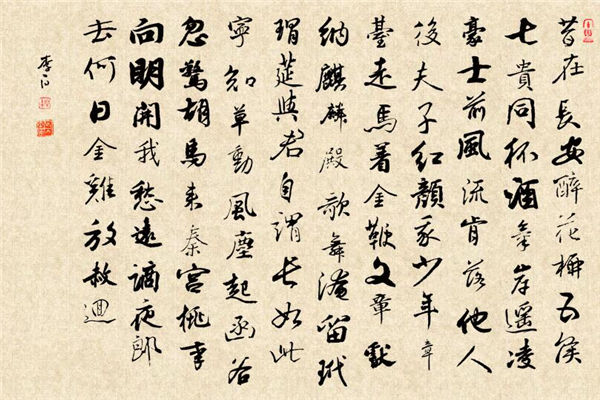 昔在長安醉花柳五侯
七貴同杯酒氣岸遙凌
豪士前風流肯落他人
後夫子紅顏我少年章
臺走馬着金鞭文章獻
納麒麟殿歌舞淹留玳
瑁筵與君自謂長如此
寧知草動風塵起函谷
忽驚胡馬來秦宮桃李
向明開我愁遠謫夜郎
去何日金雞放赦迴
李白